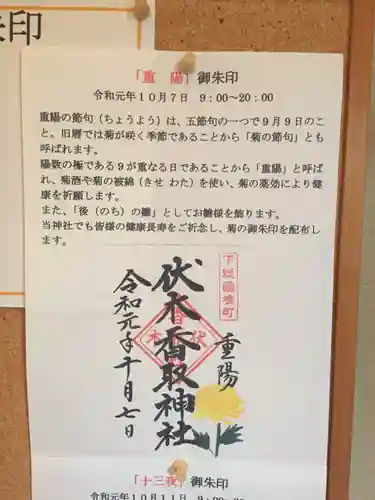 朱印
「重　陽」御朱印
令和元年１０月７日　９：００～２０：００
重陽の節句（ちょうよう）は、五節句の一つで９月９日のこ
と。旧暦では菊が咲く季節であることから「菊の節句」とも
呼ばれます。
陽数の極である９が重なる日であることから「重陽」と呼ば
れ、菊酒や菊の被綿（きせ わた）を使い、菊の薬効により健
康を祈願します。
また、「後（のち）の雛」としてお雛様を飾ります。
当神社でも皆様の健康長寿をご祈念し、菊の御朱印を配布し
ます。
下総国境町
重陽
伏木香取神社
令和元年十月七日
「十三夜」御朱印
令和元年１０月１１日